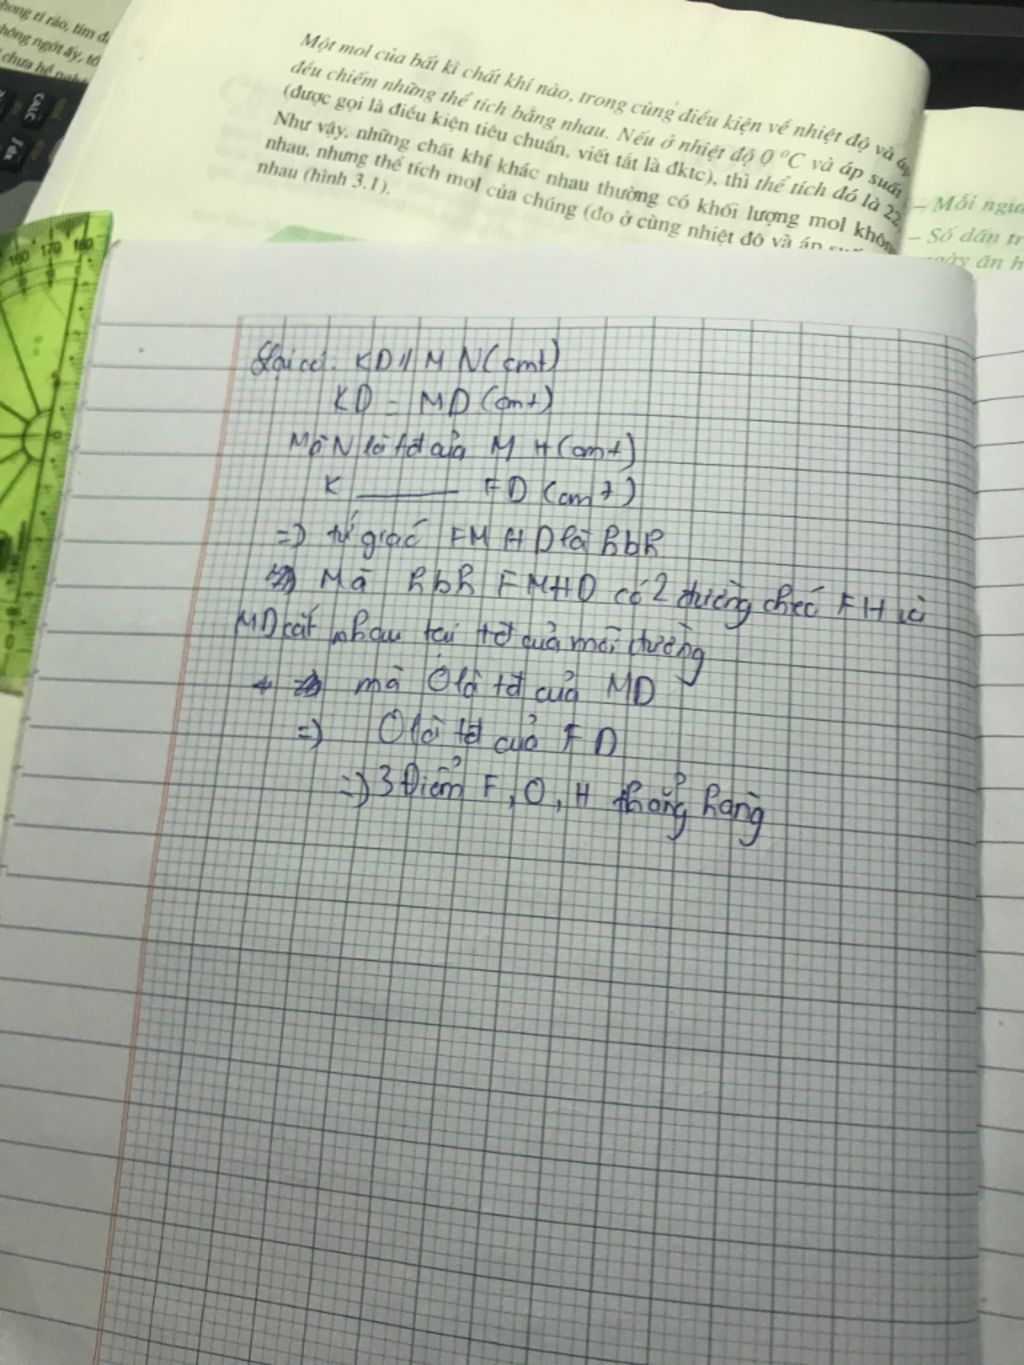 hong rì rào, tìm đ
hông ngớt ấy, tô
chưa hề nghe
CALC
Một mol của bất kì chất khí nào, trong cùng điều kiện về nhiệt độ và áp
đều chiếm những thể tích bằng nhau. Nếu ở nhiệt độ 0 °C và áp suất
(được gọi là điều kiện tiêu chuẩn, viết tắt là đktc), thì thể tích đó là 22
Như vậy, những chất khí khác nhau thường có khối lượng mol khôn
nhau, nhưng thể tích mol của chúng (đo ở cùng nhiệt độ và áp suất
nhau (hình 3.1).
– Mỗi ngư
– Số dân tr
ngày ăn h
160 170 180
0
Lại có: KD // MN (cmt)
KD = MD (cmt)
Mà N là tđ của MH (cmt)
K ——— FD (cmt)
=> tứ giác FMHD là hbh
Mà hbh FMHD có 2 đường chéo FH và
MD cắt nhau tại tđ của mỗi đường
mà O là tđ của MD
=> O là tđ của FD
=> 3 Điểm F, O, H thẳng hàng